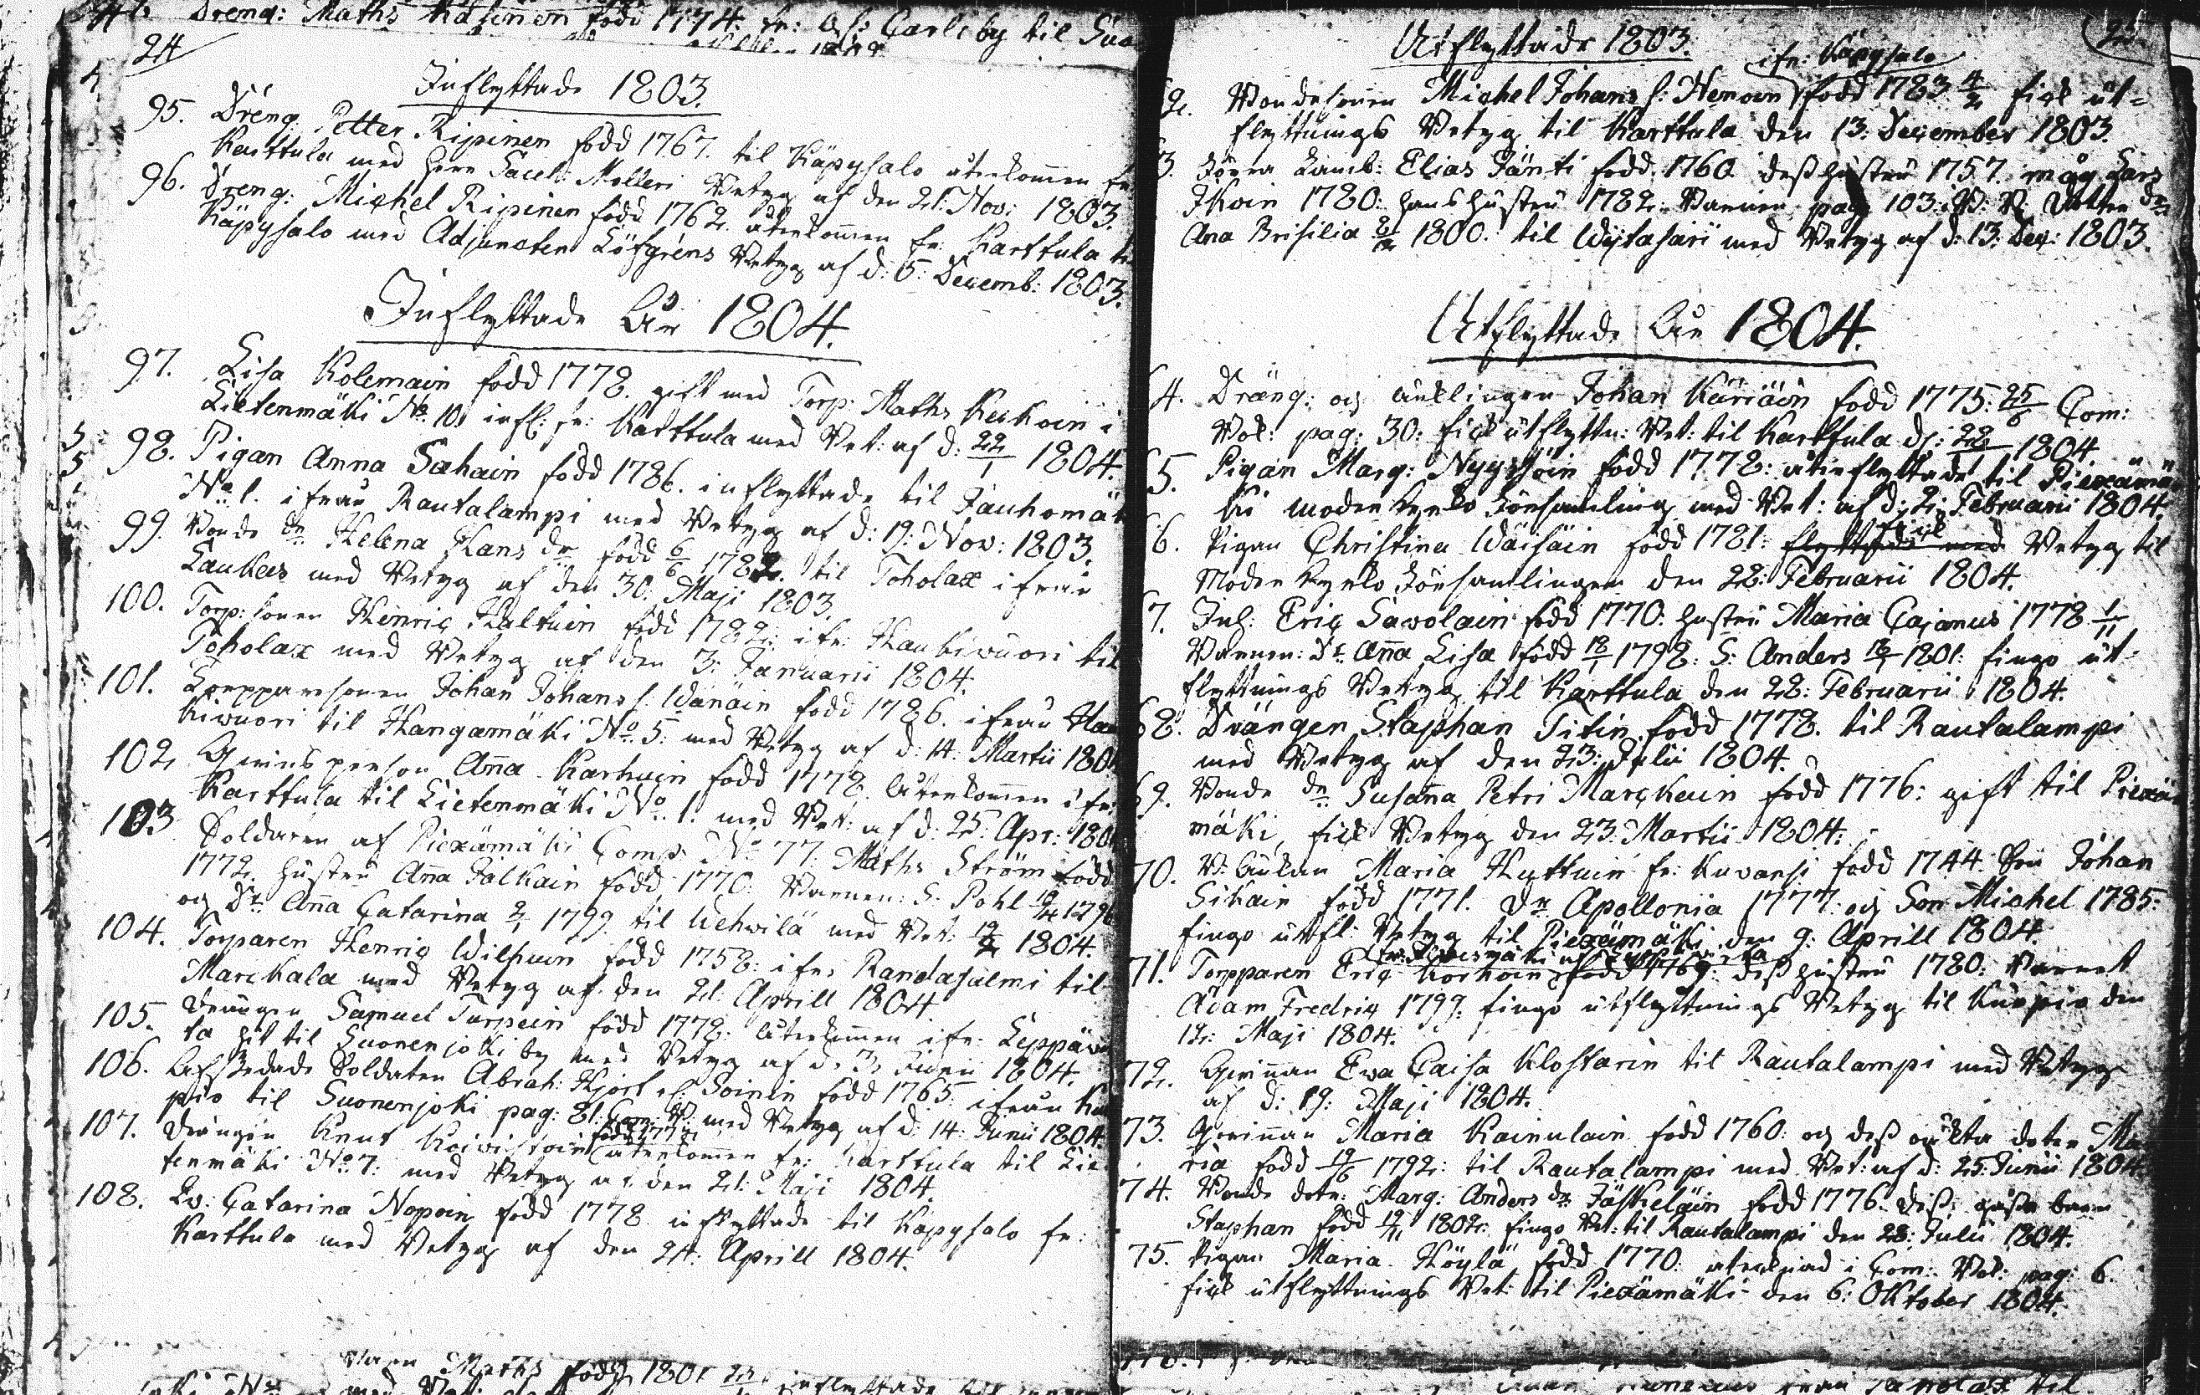 Dreng: Maths född 1774. fr: Carlsby til
24
Inflyttade 1803.
95. Dräng Petter Ripinen född 1767. til Käpysalo återkommen fr:
Karttula med Herr Sacel: Molleri Betyg af den 21: Nov: 1803.
96. Dreng: Michel Ripinen född 1762. återkommen fr: Karttula til
Käpysalo med Adjuncten Löfgréns Betyg af d: 5: Decemb: 1803.
Inflyttade År 1804.
97. Lisa Kolemain född 1778. gift med Torp: Maths Keikoin i
Lietenmäki No 10. infl: fr: Karttula med Bet: af d: 22/1 1804.
98. Pigan Anna Sahain född 1786. inflyttade til Jauhomä
No 1. ifrån Rautalampi med Betyg af d: 19: Nov: 1803.
99. Bonde dr Helena Hans dr född 6/6 1782. til Toholax ifrån
Laukas med Betyg af den 30: Maji 1803.
100. Torp: sonen Henric Haltuin född 1782: ifr: Haukivuori til
Toholax med Betyg af den 3: Januarii 1804.
101. Loppare sonen Johan Johans s: Wänäin född 1786. ifrån Hau
kivuori til Hangamäki No 5: med Betyg af d: 14: Martii 180
102. Qvins person Anna Karhuin född 1778. återkommen ifr:
Karttula til Lietenmäki No 1. med Bet: af d: 25: Apr: 180
103. Soldaten af Piexämäki Comp: No 77: Maths Ström född
1772. hustru Anna Jälkäin född 1770: Barnen: S: Pohl 1796
og Dr Anna Catarina 1799. til Wehvilä med Bet: 1804.
104. Torparen Henric Wilhuin född 1758: ifr: Randasalmi til
Marckala med Betyg af den 21: Aprill 1804.
105. Drängen Samuel Turpein född 1778: återkommen ifr: Leppäv
ta hit til Suonenjoki by med Betyg af d: 3: Junii 1804.
106. Afskedade Soldaten Abrah: Hjort el: Soinin född 1765 ifrån Ku
pio til Suonenjoki pag: 81: Com: B: med Betyg af d: 14: Junii 1804.
107. Drängen Knut Koivistoin återkommen fr: Karttula til Lie
tenmäki No 7: med Betyg af den 21: Maji 1804.
108. Catarina Nopoin född 1778 inflyttade til Käpysalo fr:
Karttula med Betyg af den 24: Aprill 1804.
Barn Maths född 1801
Utflyttade 1803.
ifr: Käpysalo
Bondesonen Michel Johans s: Hemoin född 1783 4/2 fick ut-
flyttnings Betyg til Karttula den 13: December 1803.
3. Elias Jänti född 1760 dess hustru 1757. måg Lars
Ikoin 1780: hans hustru 1782. Barnen pag 103: dotter
Ana Brisilia 1800. til Wijtasari med Betyg af d: 13: Dec: 1803.
Utflyttade År 1804.
4. Dräng: og Johan Käriäin född 1775: 25/6 Com:
Bok: pag: 30: fick utflyttn: Bet: til Karttula d: 1804
5. Pigan Marg: Nyyssöin född 1778: återflyttade til Piexämä
ki moderkyrko Församling med Bet: af d: 2: Februarii 1804.
6. Pigan Christina Wäisäin född 1781: fick Betyg til
Moderkyrko Församlingen den 28: Februarii 1804.
7. Inh: Eric Savolain född 1770. hustru Maria Cajanus 1778 1/11
Barnen: Dr Anna Lisa född 1798: S: Anders 1801: fingo ut-
flyttnings Betyg til Karttula den 28: Februarii 1804.
68. Drängen Staphan Titin född 1778. til Rautalampi
med Betyg af den 23: Julii 1804.
69. Bonde dr Susanna Petri Marckain född 1776: gift til Piexä
mäki, fick Betyg den 23: Martii 1804:
70. Enkan Maria Hyttuin fr: Kuvansi född 1744. Son Johan
Sikain född 1771. Dr Apollonia 1777: og Son Michel 1785:
fingo utfl: Betyg til Piexämäki den 9: Aprill 1804.
71. Torpparen Eric Korhoin född 1769: dess hustru 1780: Barnet
Adam Fredric 1799: fingo utflyttnings Betyg til Kuopio den
12: Maji 1804.
72. Qvinnan Ewa Caisa Klostarin til Rautalampi med Betyg
af d: 19: Maji 1804.
73. Qvinnan Maria Kainulain född 1760: og dess oäkta doter Ma
ria född 19/6 1792: til Rautalampi med Bet: af d: 25: Junii 1804.
74. Bonde doter: Marg: Anders dr Jäskeläin född 1776. dess oäkta barn
Staphan född 1802. fingo Bet: til Rautalampi den 28: Julii 1804.
75. Pigan Maria Höylä född 1770: i Com: Bok: pag: 6.
fick utflyttnings Bet: til Piexämäki den 6: Oktober 1804.